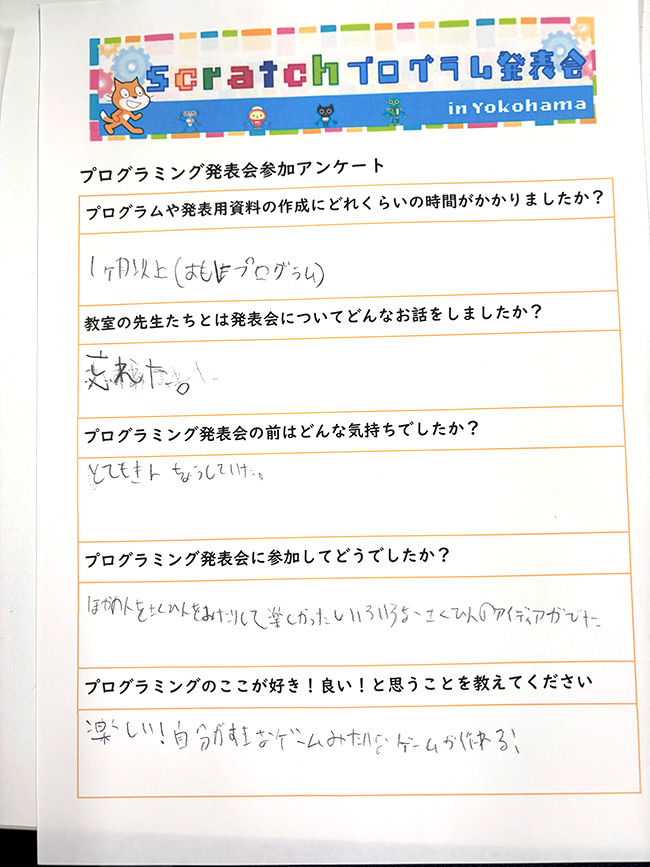 scratchプログラム発表会
in Yokohama
プログラミング発表会参加アンケート
プログラムや発表用資料の作成にどれくらいの時間がかかりましたか？
1ヶ月以上(おもにプログラム)
教室の先生たちとは発表会についてどんなお話をしましたか？
忘れた。
プログラミング発表会の前はどんな気持ちでしたか？
とてもきんちょうしていた。
プログラミング発表会に参加してどうでしたか？
ほかの人をさくひんをみたりして楽しかったいろいろなさくひんのアイディアがでた
プログラミングのここが好き！良い！と思うことを教えてください
楽しい！自分がすきなゲームみたいなゲームが作れる！